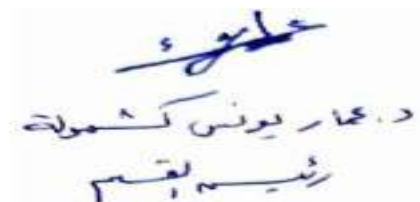 د. عمار يونس كشمولة
رئيس القسم